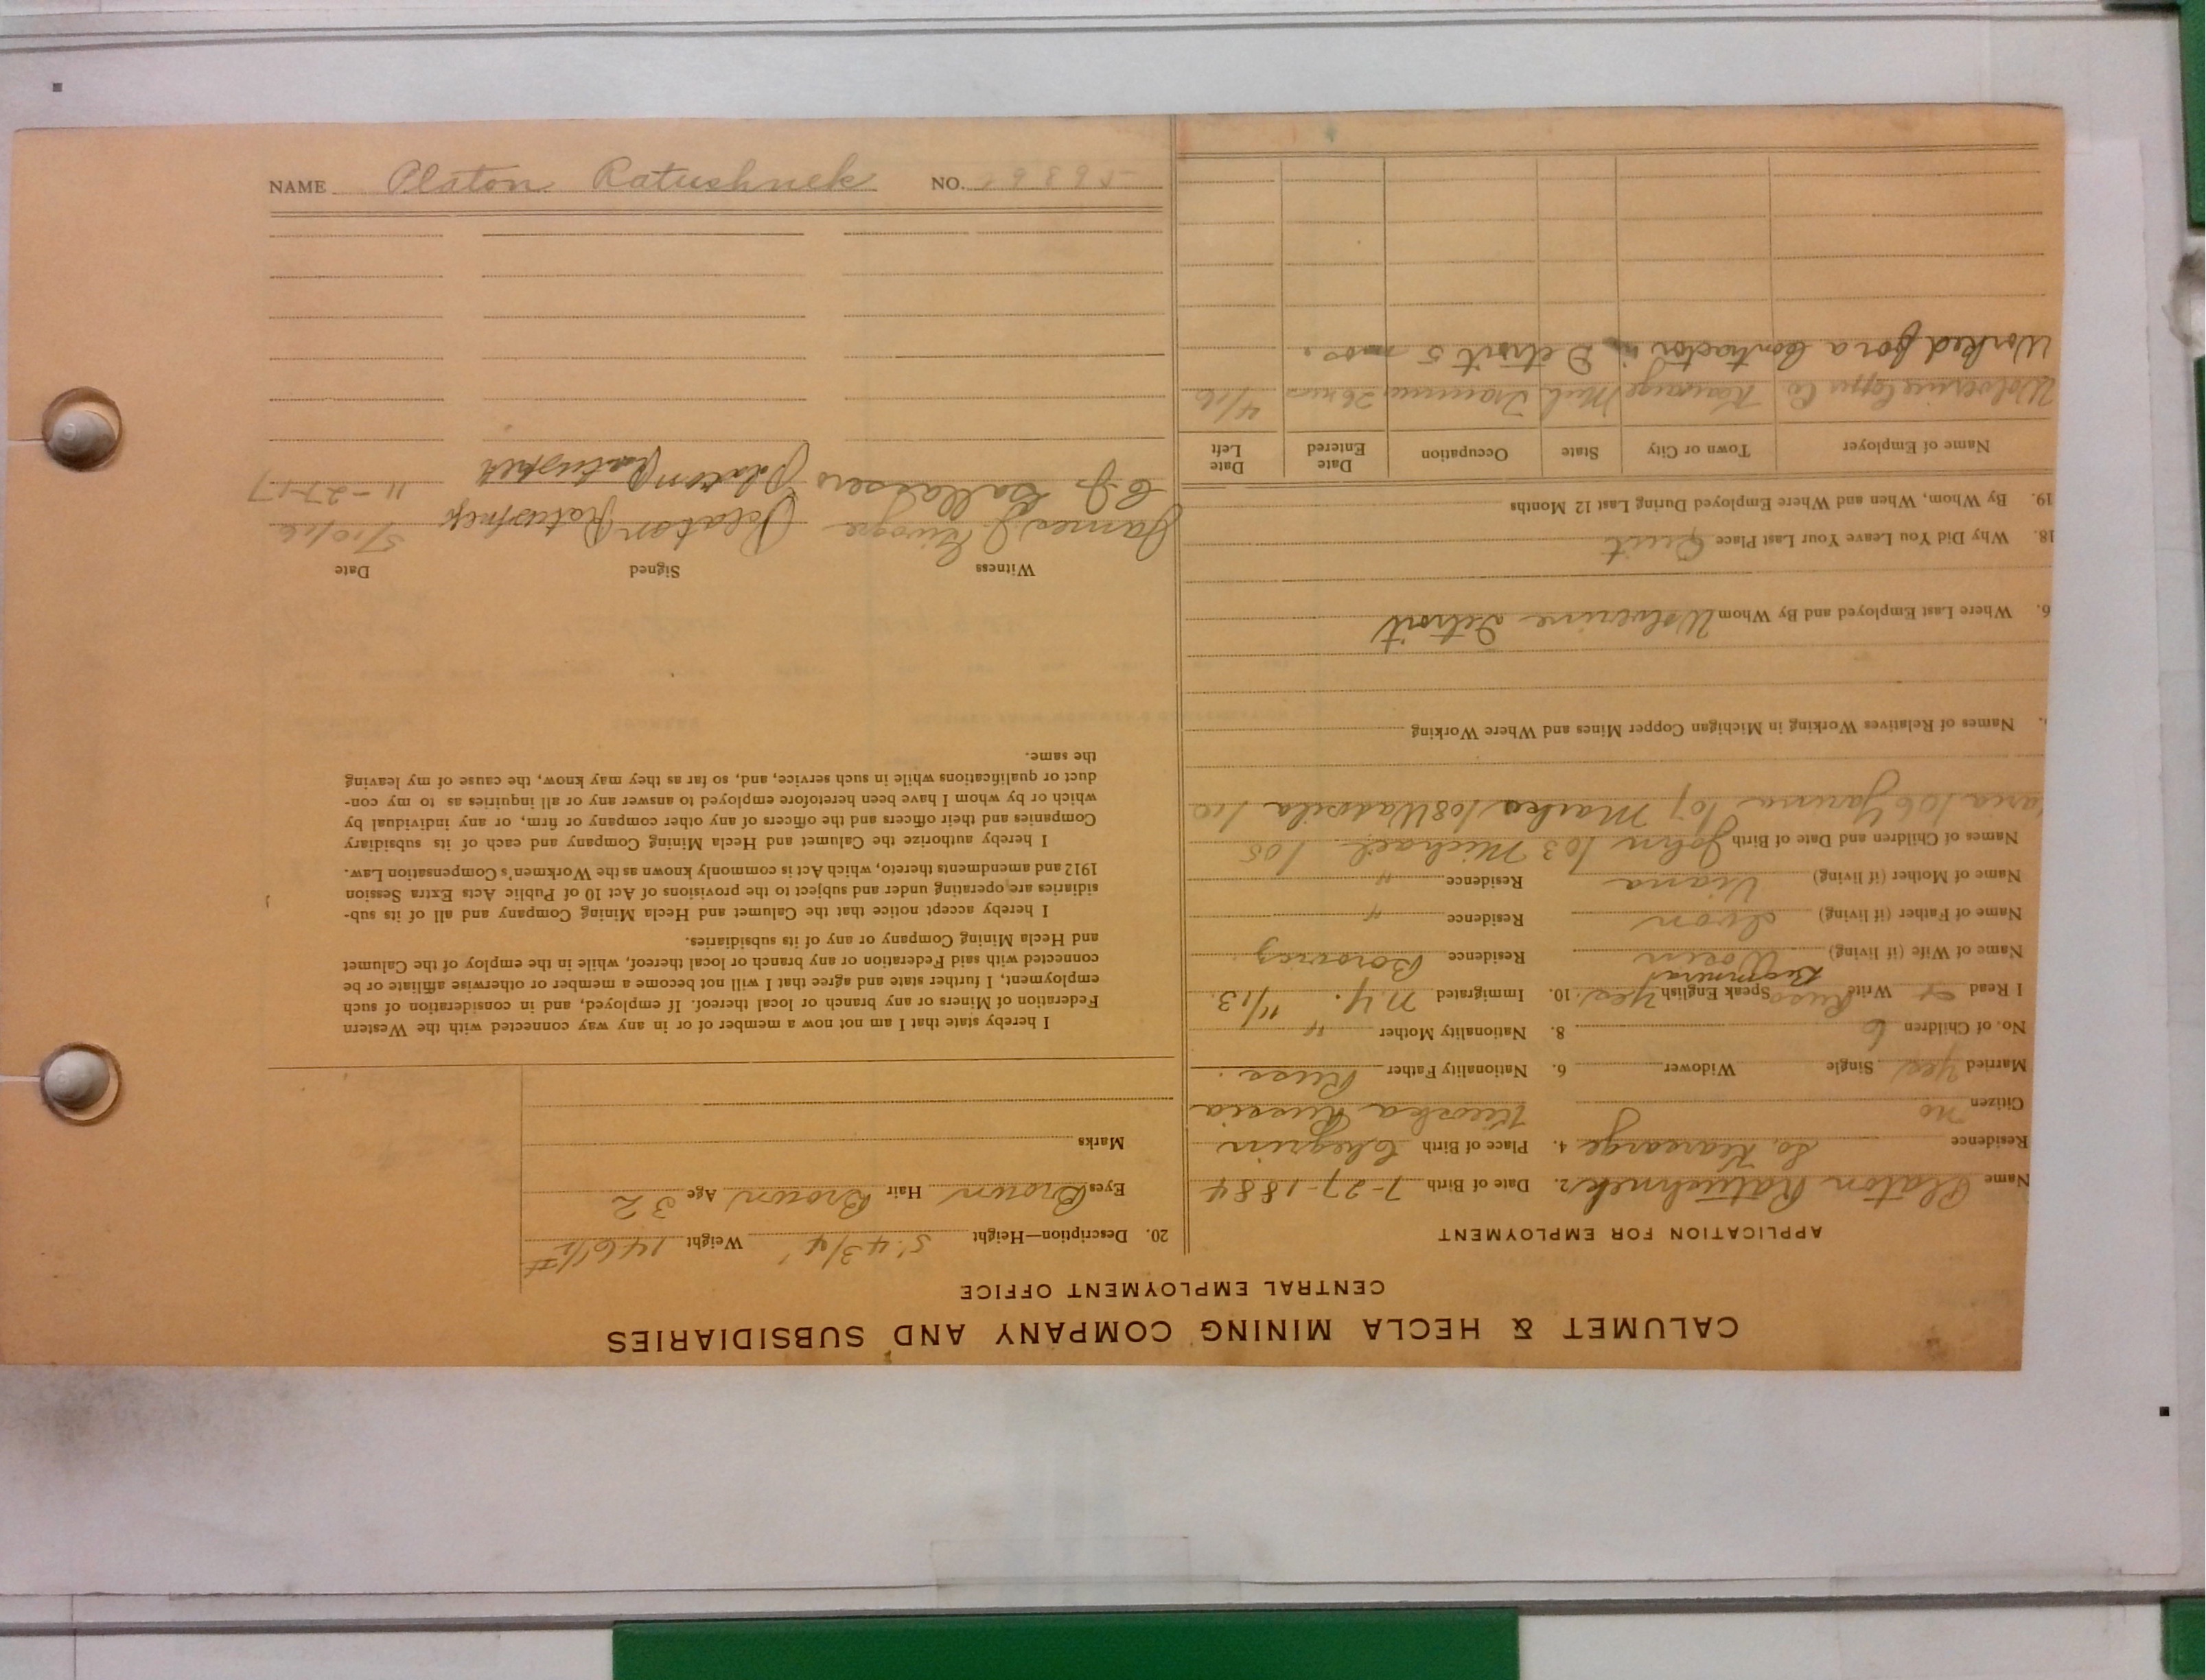 NAME Platon Ratushnek NO. 19895
CALUMET & HECLA MINING COMPANY AND SUBSIDIARIES
CENTRAL EMPLOYMENT OFFICE
APPLICATION FOR EMPLOYMENT
Name Platon Ratushnek 2. Date of Birth 7-27-1884
Residence So. Kearsarge 4. Place of Birth Chegrin
Citizen no Russia
Married Yes Single Widower 6. Nationality Father Russ.
No. of Children 6 8. Nationality Mother "
I Read Write Russ Speak English Yes 10. Immigrated N.Y. 11/13.
Name of Wife (if living) Residence
Name of Father (if living) Ivon Residence "
Name of Mother (if living) Residence "
Names of Children and Date of Birth John 103 Michael 105
106 107 Marko 108 Wassila 1
Names of Relatives Working in Michigan Copper Mines and Where Working
6. Where Last Employed and By Whom Wolverine Detroit
18. Why Did You Leave Your Last Place Quit
19. By Whom, When and Where Employed During Last 12 Months
Name of Employer Town or City State Occupation Date Entered Date Left
Wolverine Copper Co Kearsarge Mich Trammer 26 mos 4/16
Worked for a Contractor in Detroit 5 mos.
20. Description—Height 5' 4 3/4" Weight 146 1/2 #
Eyes Brown Hair Brown Age 32
Marks
I hereby state that I am not now a member of or in any way connected with the Western
Federation of Miners or any branch or local thereof. If employed, and in consideration of such
employment, I further state and agree that I will not become a member or otherwise affiliate or be
connected with said Federation or any branch or local thereof, while in the employ of the Calumet
and Hecla Mining Company or any of its subsidiaries.
I hereby accept notice that the Calumet and Hecla Mining Company and all of its sub-
sidiaries are operating under and subject to the provisions of Act 10 of Public Acts Extra Session
1912 and amendments thereto, which Act is commonly known as the Workmen's Compensation Law.
I hereby authorize the Calumet and Hecla Mining Company and each of its subsidiary
Companies and their officers and the officers of any other company or firm, or any individual by
which or by whom I have been heretofore employed to answer any or all inquiries as to my con-
duct or qualifications while in such service, and, so far as they may know, the cause of my leaving
the same.
Witness Signed Date
James Platon Ratushnek 5/10/16
C. J. Platon Ratushnek 11-27-17